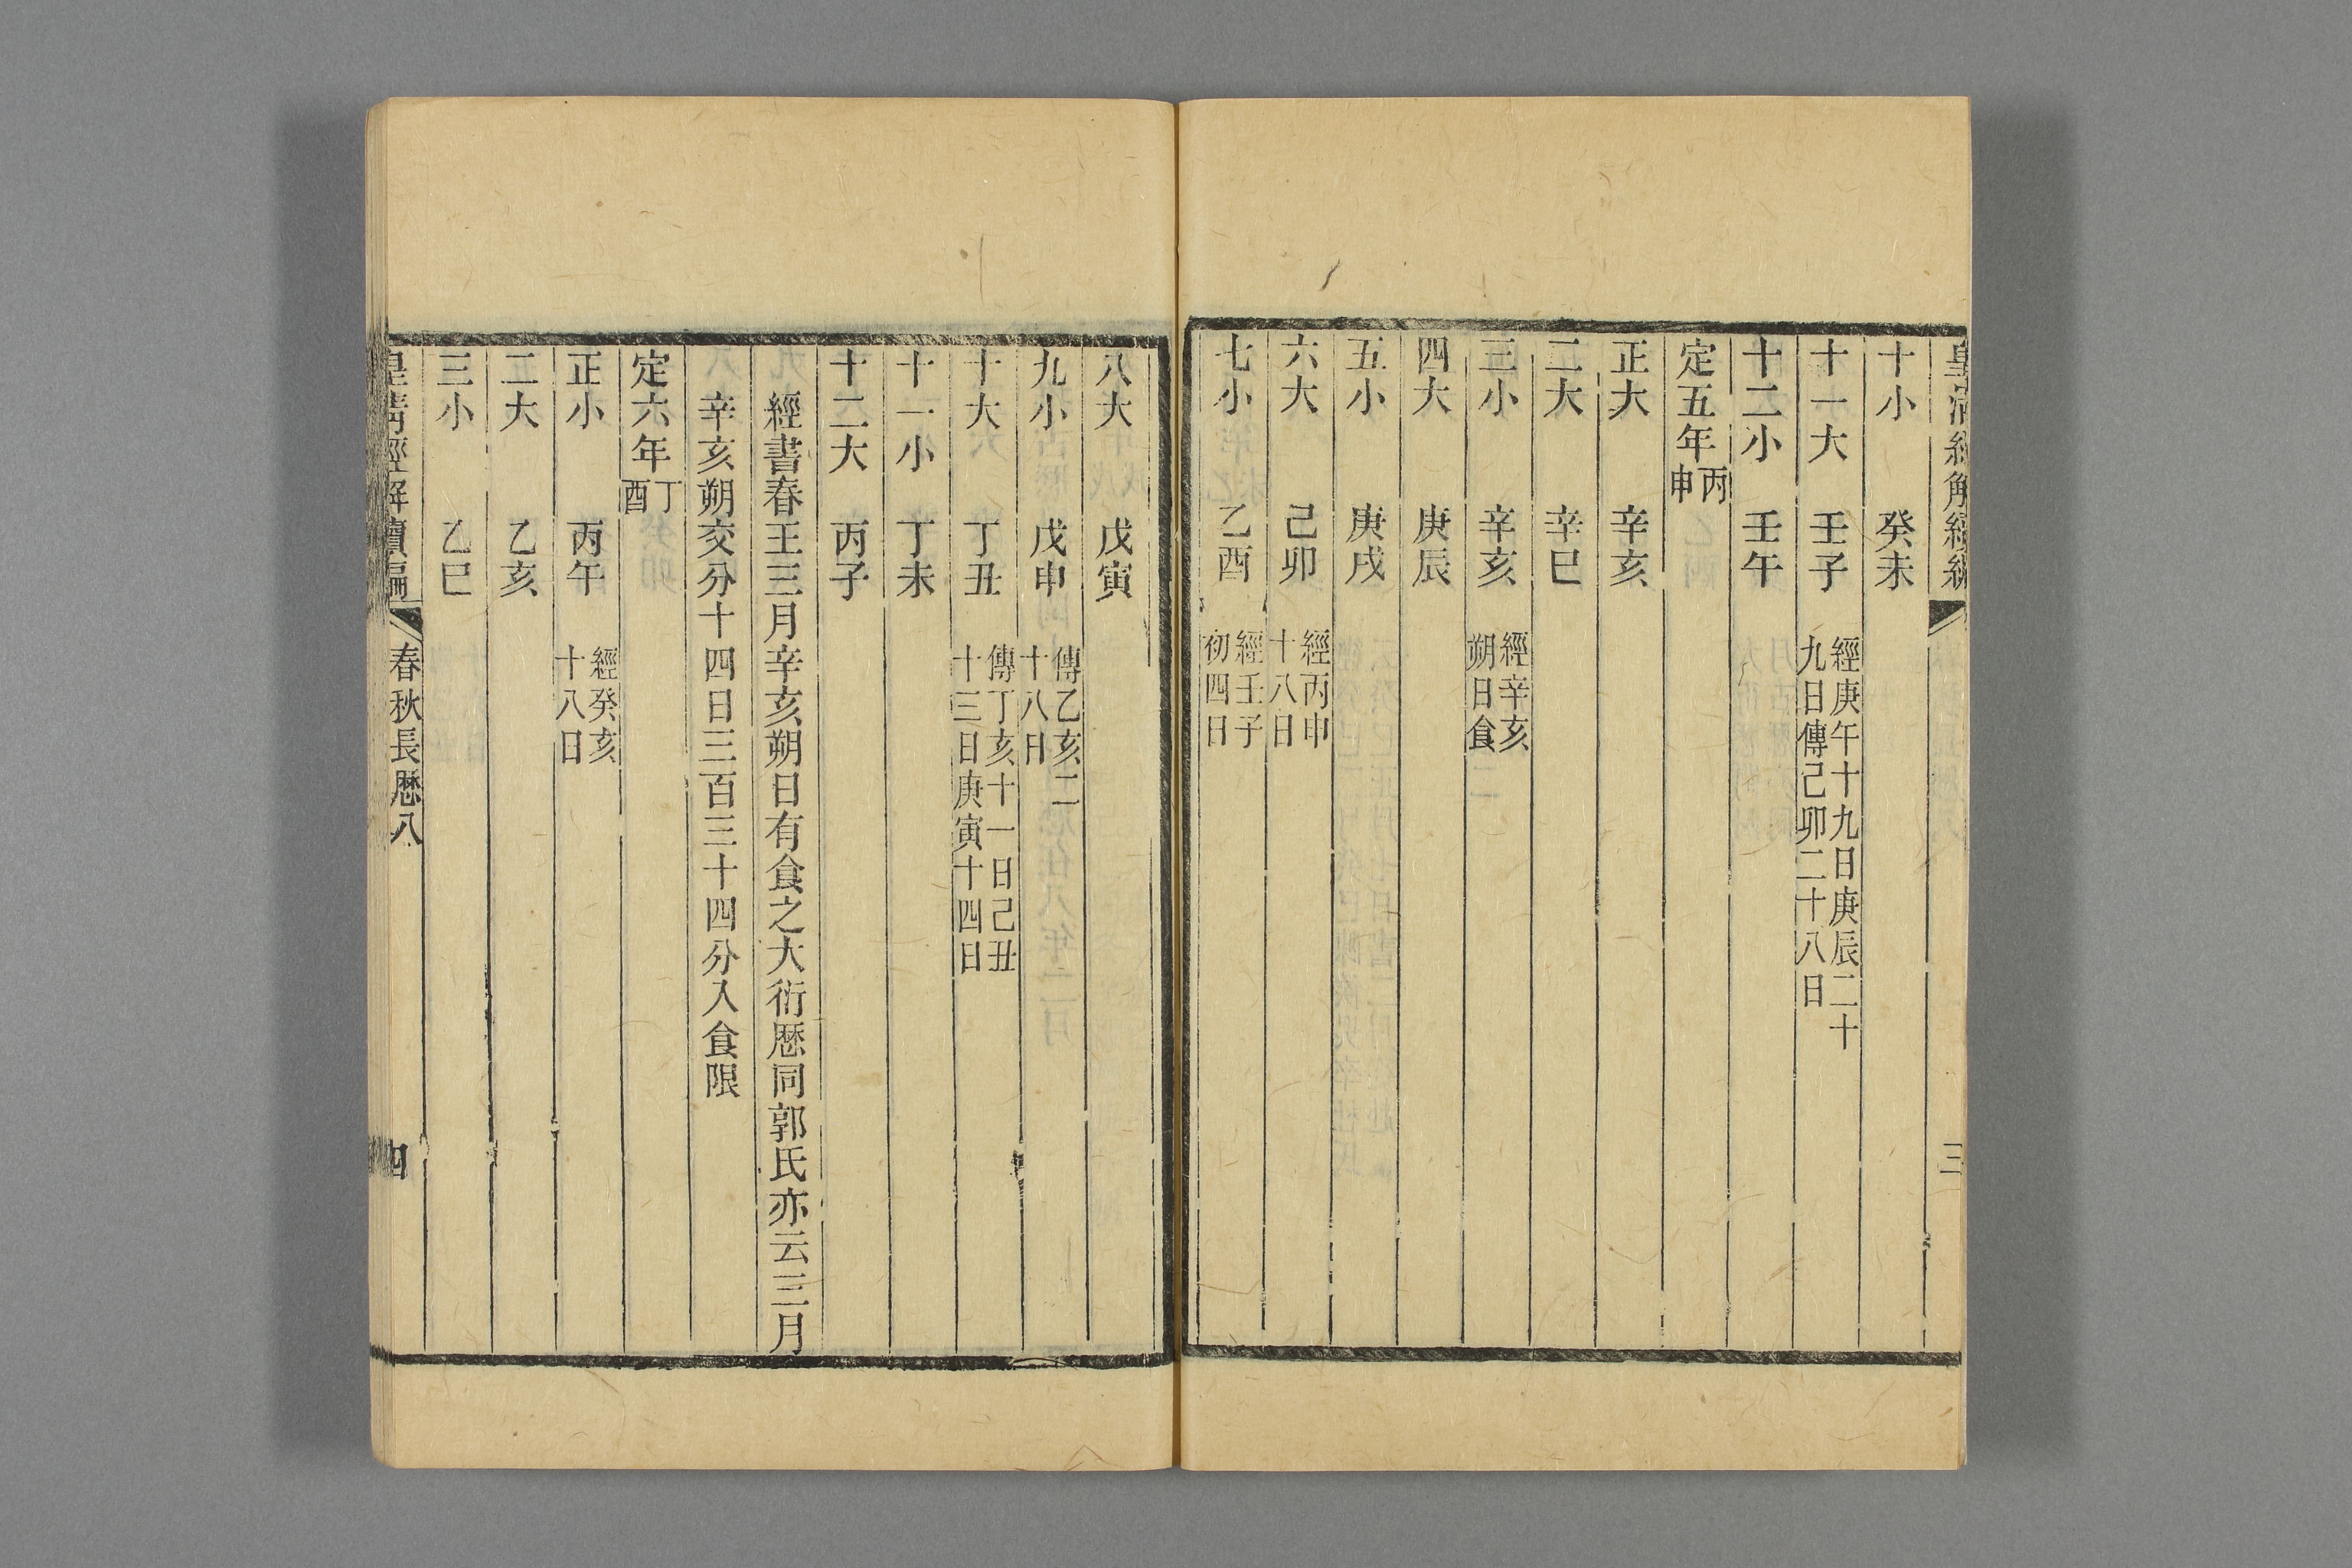 皇清經解續編
三
十小　癸未
十一大　壬子　經庚午十九日庚辰二十
九日傳己卯二十八日
十二小　壬午
定五年丙
申
正大　辛亥
二大　辛巳
三小　辛亥　經辛亥
朔日食
四大　庚辰
五小　庚戌
六大　己卯　經丙申
十八日
七小　乙酉　經壬子
初四日
八大　戊寅
九小　戊申　傳乙亥二
十八日
十大　丁丑　傳丁亥十一日己丑
十三日庚寅十四日
十一小　丁未
十二大　丙子
經書春王三月辛亥朔日有食之大衍厯同郭氏亦云三月
辛亥朔交分十四日三百三十四分入食限
定六年丁
酉
正小　丙午　經癸亥
十八日
二大　乙亥
三小　乙巳
皇清經解續編　春秋長厯八　四